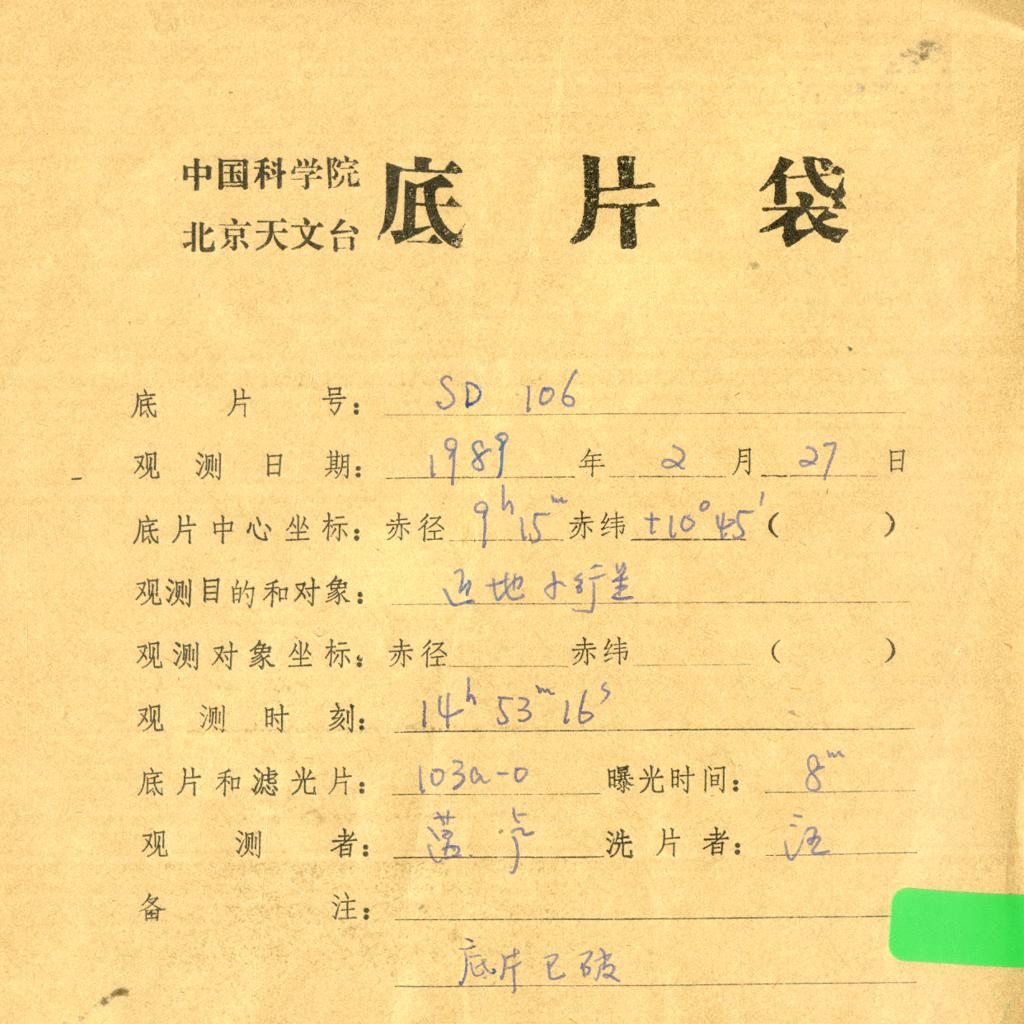 中国科学院
北京天文台
底片袋
底片号： SD 106
观测日期： 1989 年 2 月 27 日
底片中心坐标：赤径 9ʰ15ᵐ 赤纬 +10°45′ （ ）
观测目的和对象： 近地小行星
观测对象坐标：赤径 赤纬 （ ）
观测时刻： 14ʰ 53ᵐ 16ˢ
底片和滤光片： 103a-O 曝光时间： 8ᵐ
观测者： 洗片者： 汪
备注：
底片已破